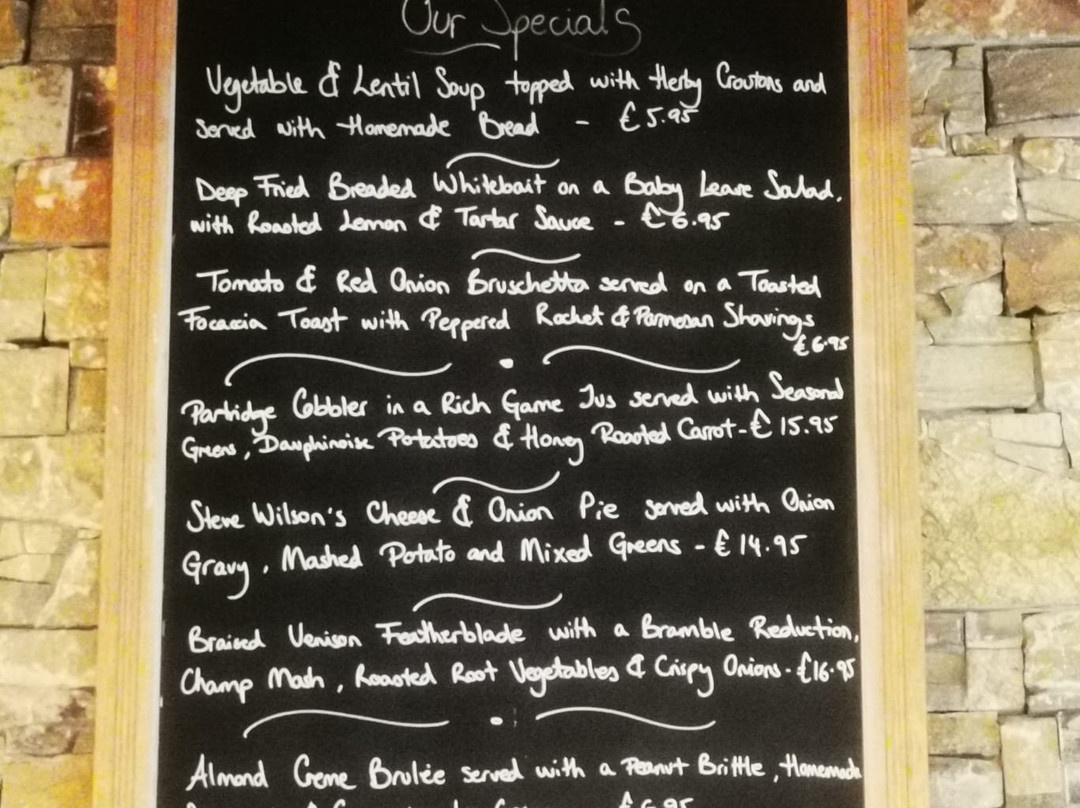 Our Specials
Vegetable & Lentil Soup topped with Herby Croutons and
served with Homemade Bread - £5.95
Deep Fried Breaded Whitebait on a Baby Leave Salad,
with Roasted Lemon & Tartar Sauce - £6.95
Tomato & Red Onion Bruschetta served on a Toasted
Focaccia Toast with Peppered Rocket & Parmesan Shavings
£6.95
Partridge Cobbler in a Rich Game Jus served with Seasonal
Greens, Dauphinoise Potatoes & Honey Roasted Carrot - £15.95
Steve Wilson's Cheese & Onion Pie served with Onion
Gravy, Mashed Potato and Mixed Greens - £14.95
Braised Venison Featherblade with a Bramble Reduction,
Champ Mash, Roasted Root Vegetables & Crispy Onions - £16.95
Almond Creme Brulée served with a Peanut Brittle, Homemade
£6.95